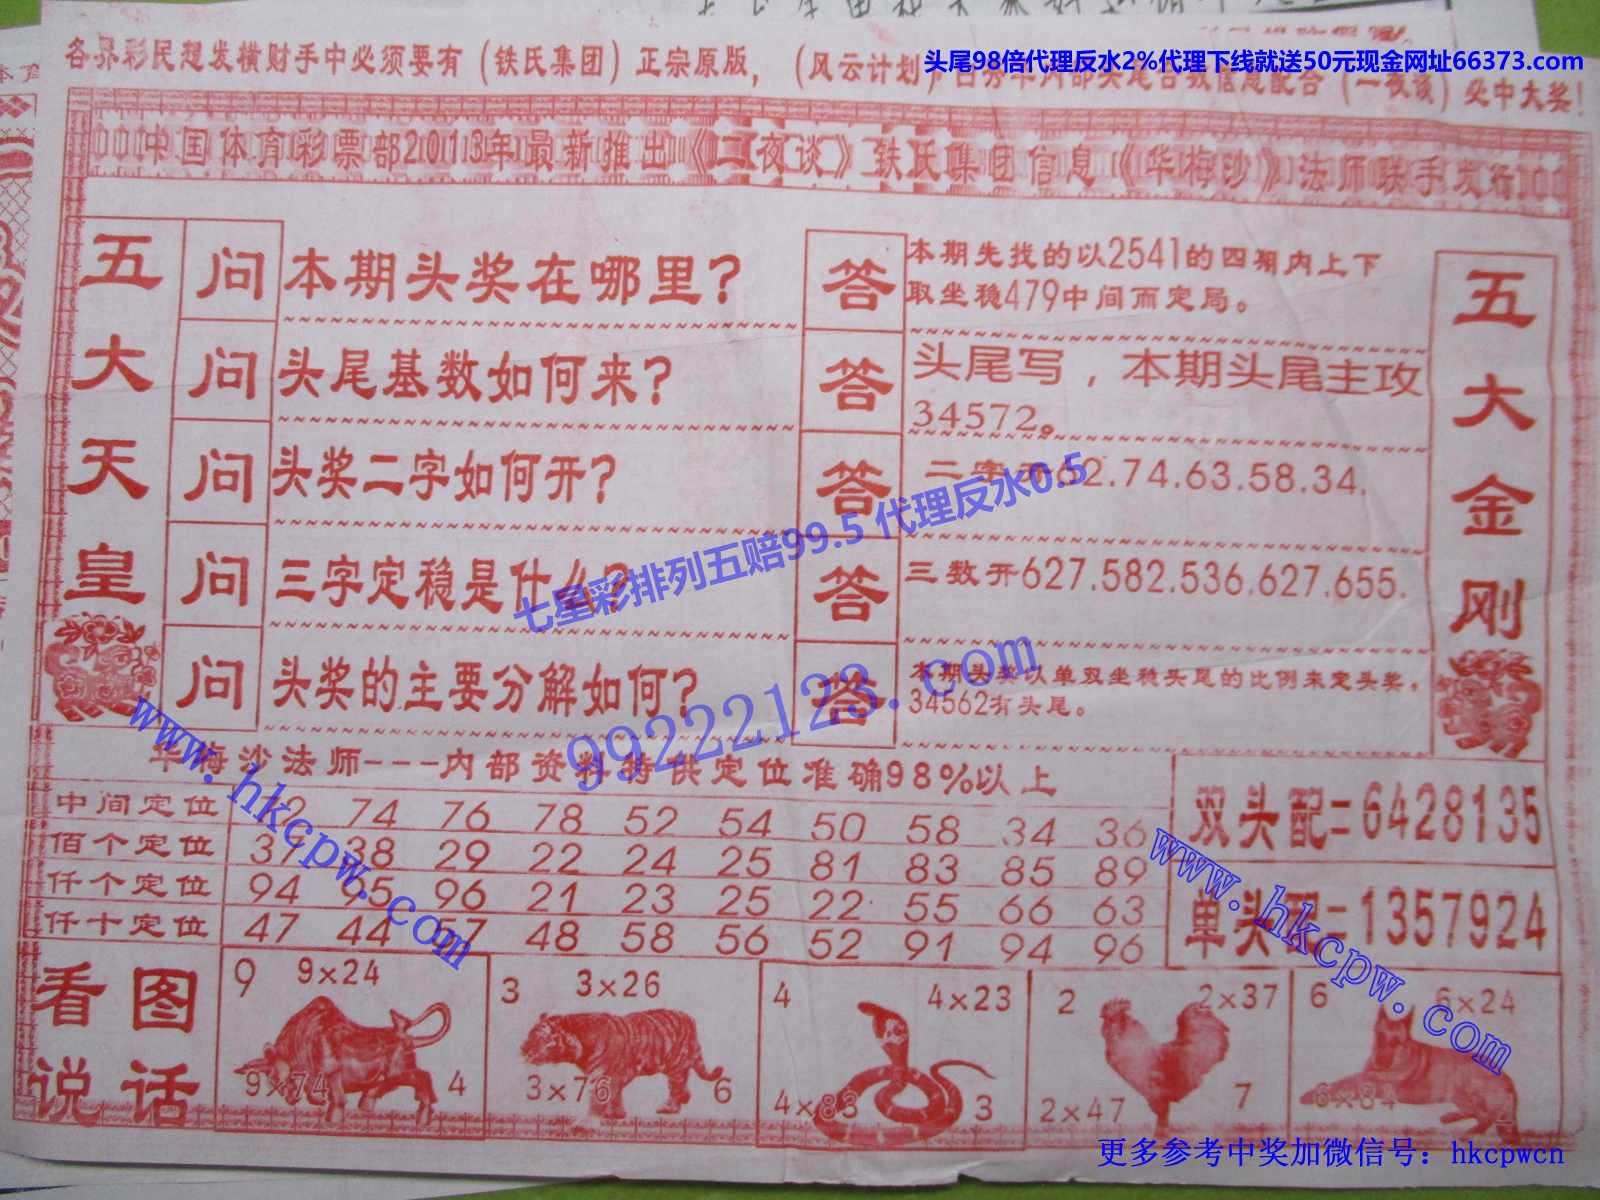 各界彩民想发横财手中必须要有（铁氏集团）正宗原版，（风云计划）
必中大奖！
头尾98倍代理反水2%代理下线就送50元现金网址66373.com
中国体育彩票部2013年最新推出《二夜谈》铁氏集团信息《华梅沙》法师联手发行
五大天皇
问 本期头奖在哪里？
答 本期先找的以2541的四期内上下
取坐稳479中间而定局。
问 头尾基数如何来？
答 头尾写，本期头尾主攻
34572。
问 头奖二字如何开？
答 二字开62.74.63.58.34.
问 三字定稳是什么？
答 三数开627.582.536.627.655.
问 头奖的主要分解如何？
答 本期头奖以单双坐稳头尾的比例来定头奖，
34562有头尾。
五大金刚
七星彩排列五赔99.5 代理反水0.5
99222123.com
www.hkcpw.com
华梅沙法师---内部资料特供定位准确98%以上
中间定位 74 76 78 52 54 50 58 34 36
佰个定位 37 38 29 22 24 25 81 83 85 89
仟个定位 94 65 96 21 23 25 22 55 66 63
仟十定位 47 44 57 48 58 56 52 91 94 96
双头配=6428135
单头配=1357924
www.hkcpw.com
看图说话
9 9×24
9×74 4
3 3×26
3×76 6
4 4×23
4×83 3
2 2×37
2×47 7
6 6×24
6×84
更多参考中奖加微信号：hkcpwcn